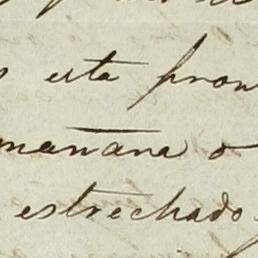 esta pron
mañana o
estrechado